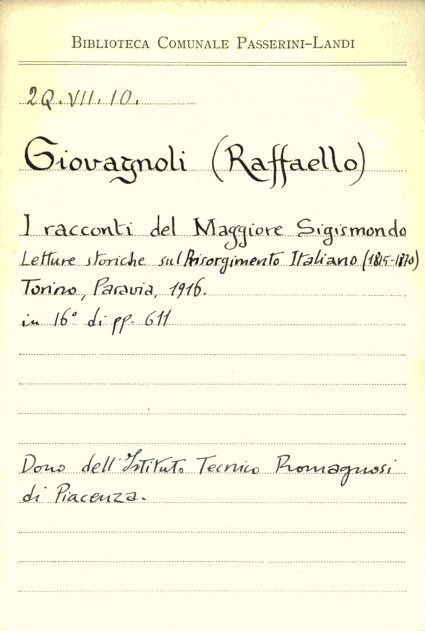 BIBLIOTECA COMUNALE PASSERINI-LANDI
2Q.VII.10.
Giovagnoli (Raffaello)
I racconti del Maggiore Sigismondo
Letture storiche sul Risorgimento Italiano (1815-1870)
Torino, Paravia, 1916.
in 16° di pp. 611
Dono dell'Istituto Tecnico Romagnosi
di Piacenza.